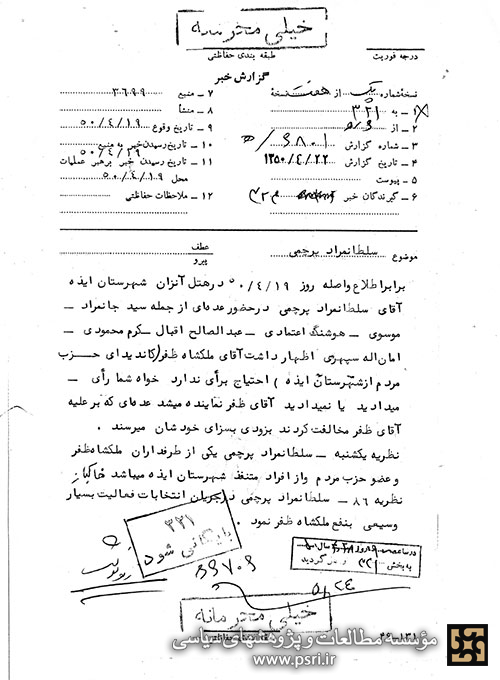 خیلی محرمانه
درجه فوریت
طبقه بندی حفاظتی
گزارش خبر
نسخه شماره یک از هفت نسخه
۱ – به ۳۲۱
۲ – از ۵ه۶
۳ – شماره گزارش ۶۸۰۱/ه
۴ – تاریخ گزارش ۱۳۵۰/۴/۲۲
۵ – پیوست
۶ – گیرندگان خبر
۷ – منبع ۳۶۹۹
۸ – منشأ
۹ – تاریخ وقوع ۵۰/۴/۱۹
۱۰ – تاریخ رسیدن خبر به منبع
۱۱ – تاریخ رسیدن خبر برهبر عملیات
محل ۵۰/۴/۱۹
۱۲ – ملاحظات حفاظتی
موضوع سلطانمراد پرچمی
عطف
پیرو
برابر اطلاع واصله روز ۵۰/۴/۱۹ در هتل آنزان شهرستان ایذه
آقای سلطانمراد پرچمی در حضور عده‌ای از جمله سید جانمراد –
موسوی – هوشنگ اعتمادی – عبدالصالح اقبال – کرم محمودی –
امان اله سپهری اظهار داشت آقای ملکشاه ظفر (کاندیدای حزب
مردم از شهرستان ایذه) احتیاج برأی ندارد خواه شما رأی –
میدادید یا نمیدادید آقای ظفر نماینده میشد عده‌ای که بر علیه
آقای ظفر مخالفت کردند بزودی بسزای خودشان میرسند .
نظریه یکشنبه – سلطانمراد پرچمی یکی از طرفداران ملکشاه ظفر
و عضو حزب مردم و از افراد متنفذ شهرستان ایذه میباشد خاکباز
نظریه ۸۶ – سلطانمراد پرچمی در جریان انتخابات فعالیت بسیار
وسیعی بنفع ملکشاه ظفر نمود .
۳۲۱
بایگانی شود
در ساعت
به بخش ۳۲۱ وارد گردید
خیلی محرمانه
طبقه بندی حفاظتی
۴۶–۱۳۱
مؤسسه مطالعات و پژوهشهای سیاسی
www.psri.ir